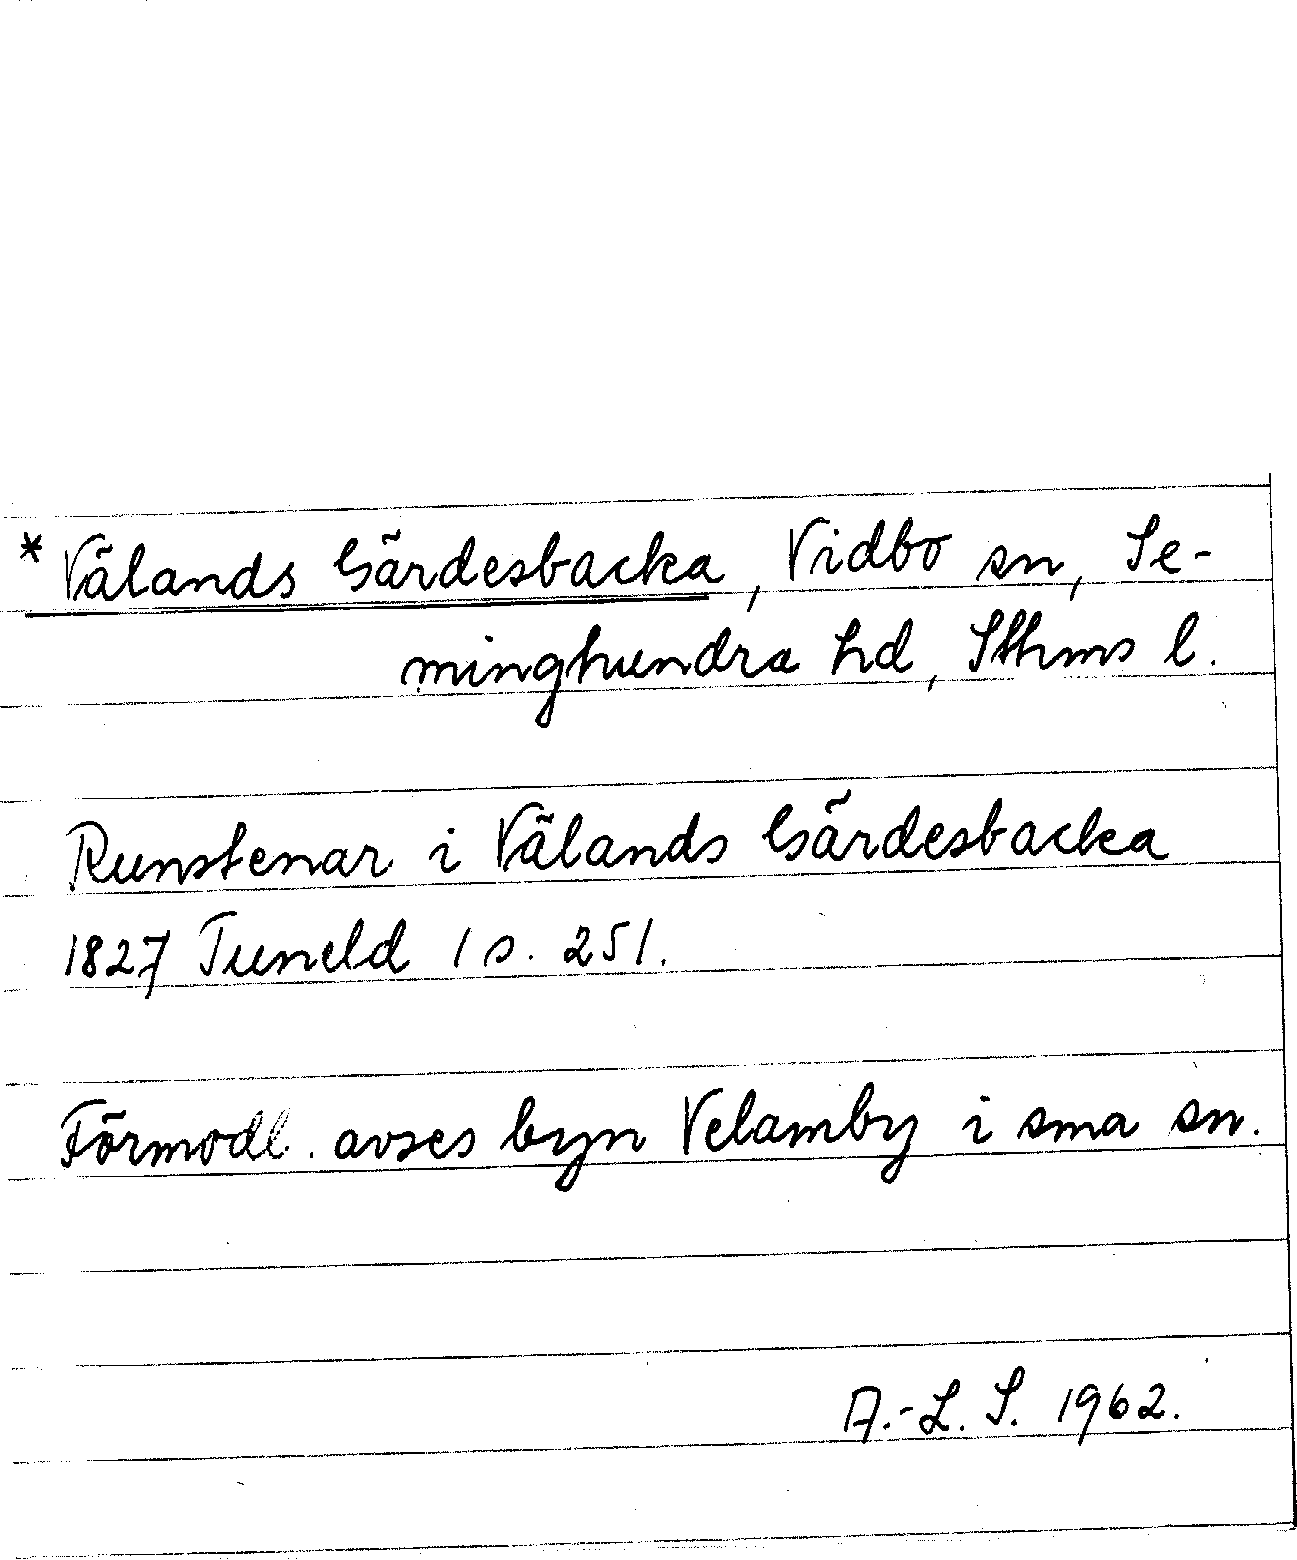 * Välands Gärdesbacka, Vidbo sn, Se-
minghundra hd, Sthms l.
Runstenar i Välands Gärdesbacka
1827 Tuneld 1 s. 251.
Förmodl. avses byn Velamby i sma sn.
A.-L. S. 1962.